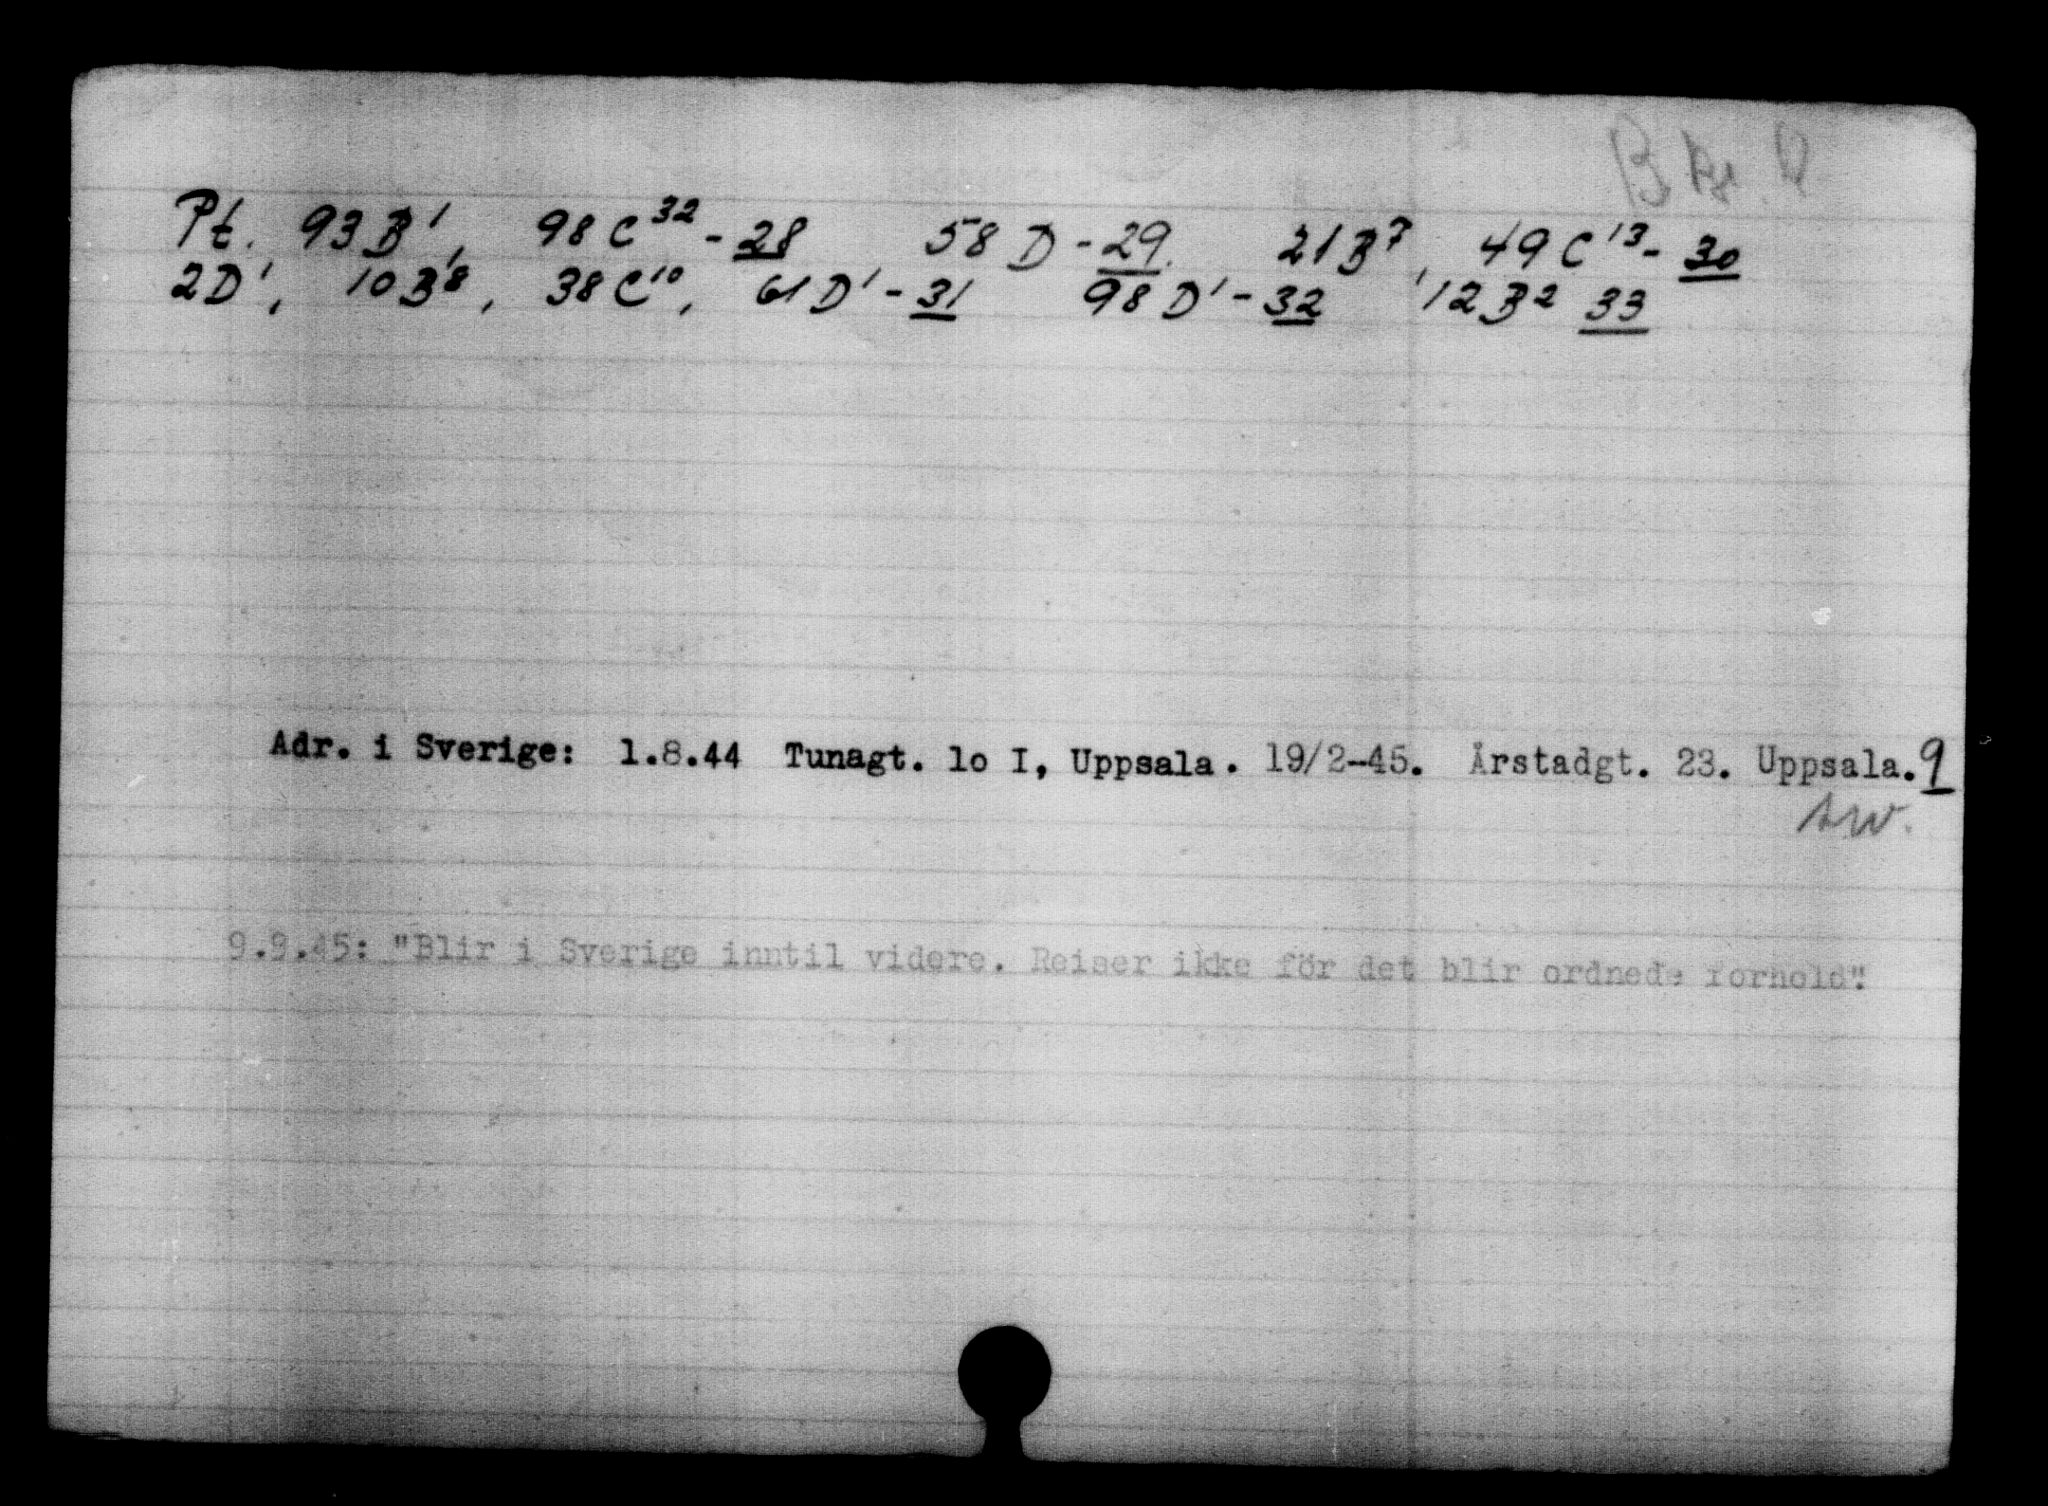 Pt. 93B¹, 98C³²-28 58D-29. 21B⁷, 49C¹³-30
2D¹, 10B⁸, 38C¹⁰, 61D¹-31 98D¹-32 12B² 33
Adr. i Sverige: 1.8.44 Tunagt. lo I, Uppsala. 19/2-45. Årstadgt. 23. Uppsala. 9
AW.
9.9.45: "Blir i Sverige inntil videre. Reiser ikke för det blir ordnede forhold".